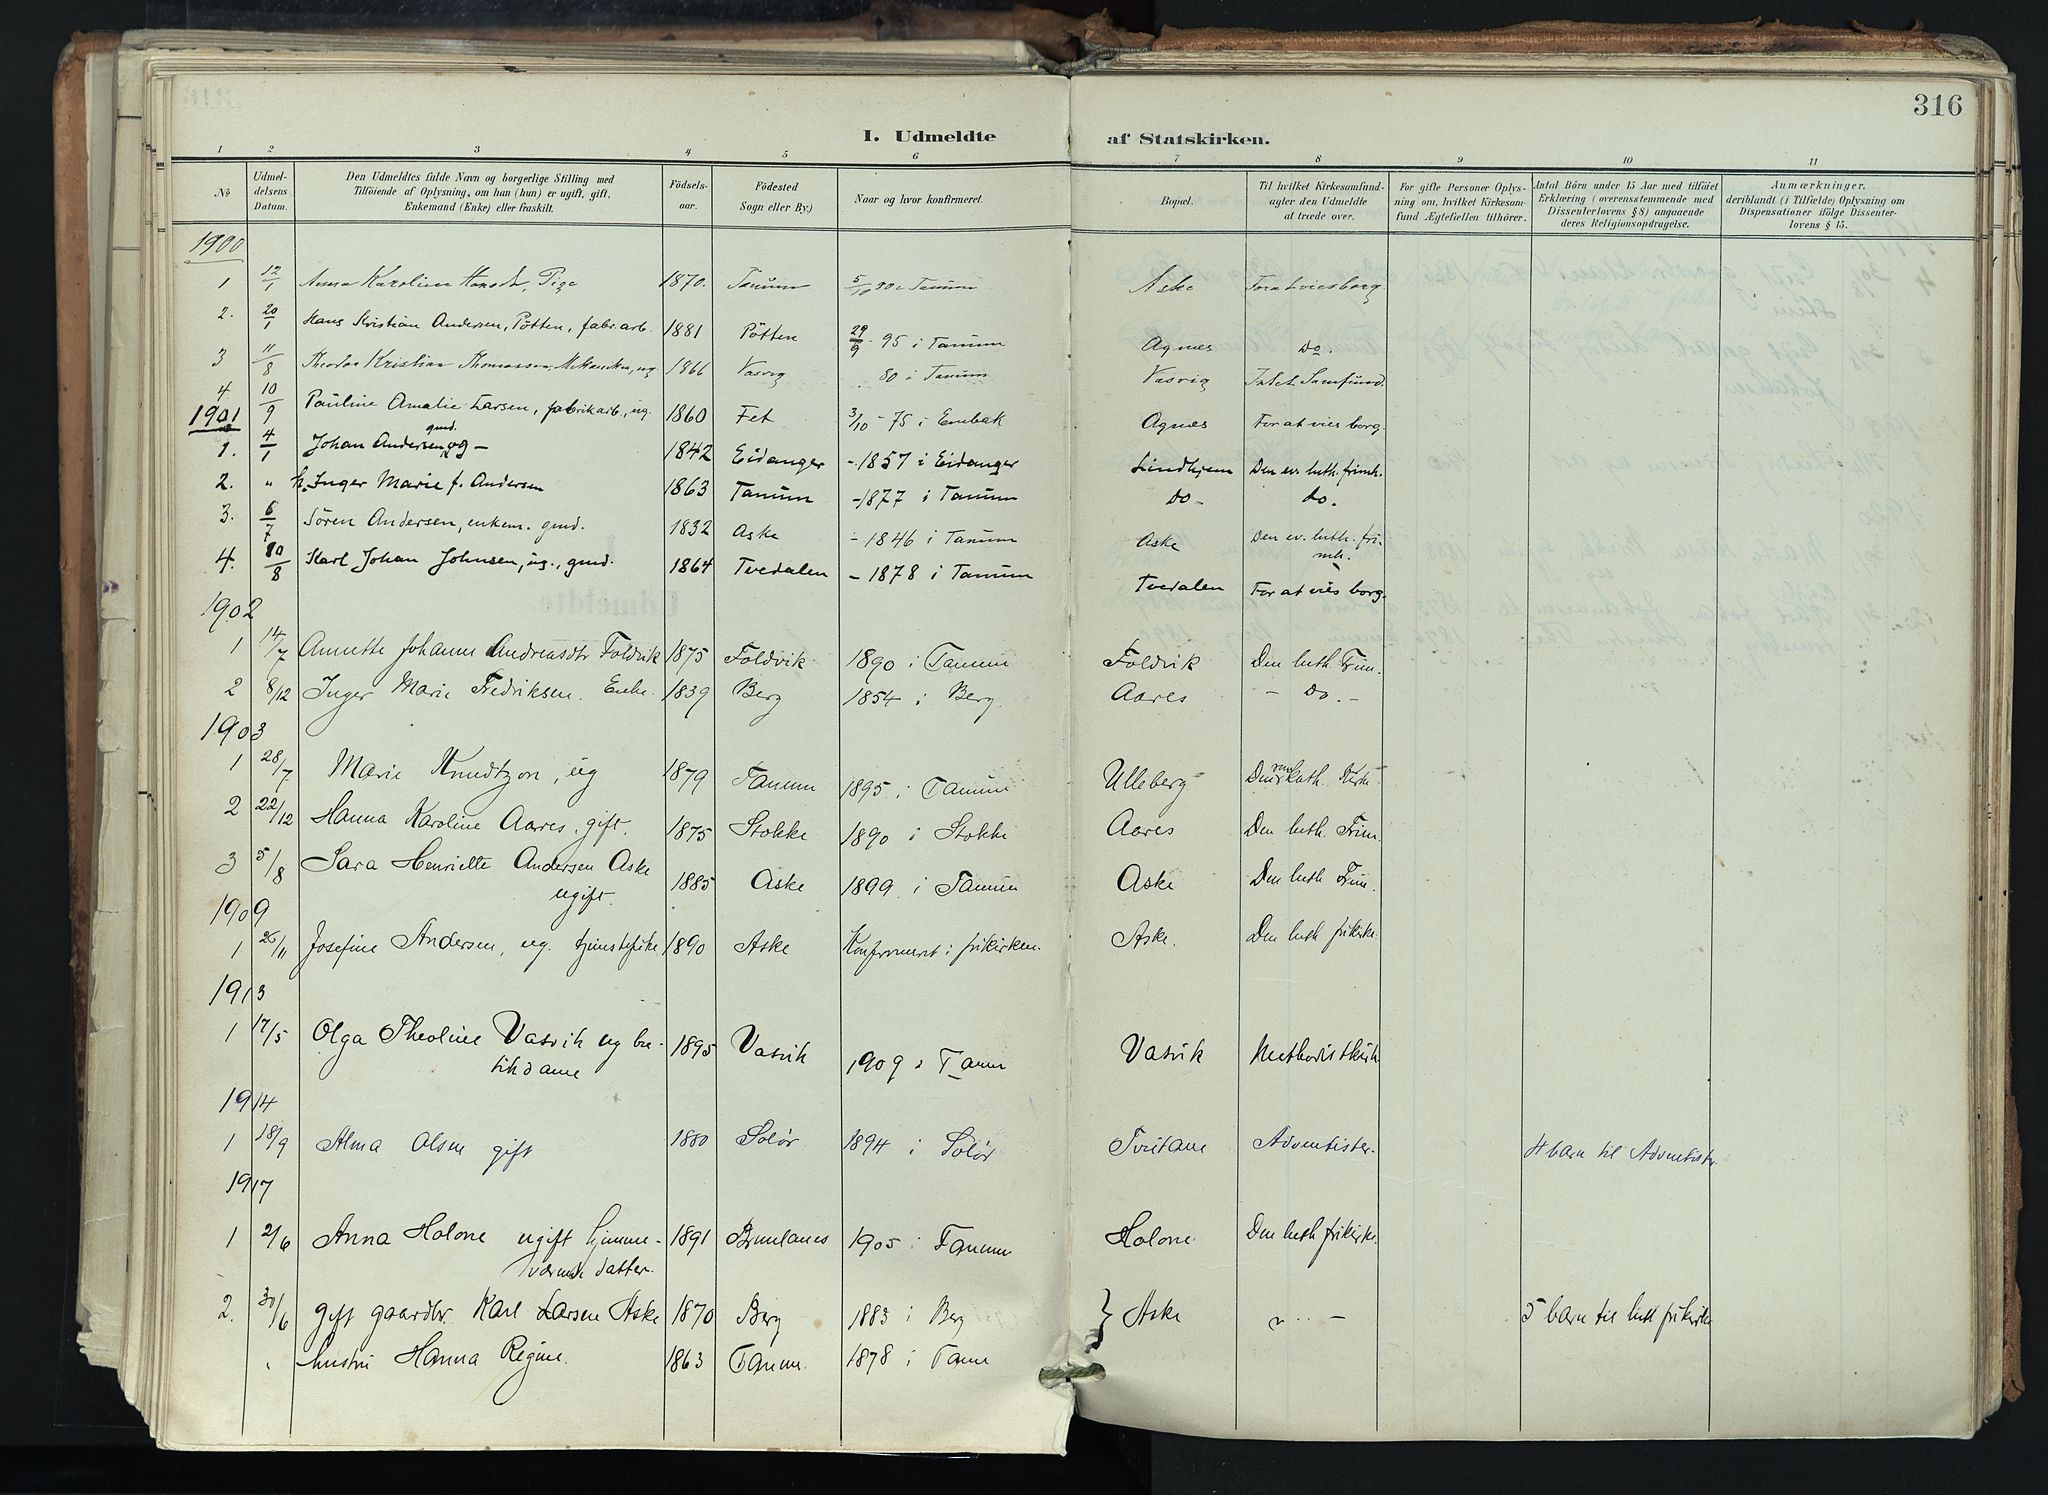 316
I. Udmeldte af Statskirken.
1 2 3 4 5 6 7 8 9 10 11
No. Udmeldelsens Datum. Den Udmeldtes fulde Navn og borgerlige Stilling med Tilföiende af Oplysning, om han (hun) er ugift, gift, Enkemand (Enke) eller fraskilt. Födselsaar. Födested Sogn eller By.) Naar og hvor konfirmeret. Bopæl. Til hvilket Kirkesamfund agter den Udmeldte at træde over. For gifte Personer Oplysning om, hvilket Kirkesamfund Ægtefellen tilhörer. Antal Börn under 15 Aar med tilföiet Erklæring (overensstemmende med Dissenterlovens § 8) angaaende deres Religionsopdragelse. Anmærkninger, deriblandt (i Tilfælde) Oplysning om Dispensationer ifölge Dissenterlovens § 15.
1900
1 12/1 Anna Karoline Hansdt, Pige 1870. Tanum 5/10 i Tanum Aske
2. 20/1 Hans Kristian Andersen, Pötten, fabr.arb. 1881 Pötten 29/9 - 95 i Tanum Agnes Do.
3 11/8 Kristian Thomassen, ug 1866 Vasvig 80 i Tanum Vasvig Intet Samfund.
4. 10/9 Pauline Amalie Larsen, fabrikarb., ug. 1860 Fet 3/10 - 75 i Agnes For at vies borg.
1901
1. 4/1 Johan Andersen, gmd. og - 1842 Eidanger - 1857 i Eidanger Lindhjem Den ev. luth. frimh.
2. " h. Inger Marie f. Andersen 1863 Tanum - 1877 i Tanum do - do.
3. 6/7 Sören Andersen, enkem. gmd. 1832 Aske - 1846 i Tanum Aske Den ev. luth. frimh.
4. 10/8 Karl Johan Johnsen, ug., gmd. 1864 Tvedalen - 1878 i Tanum Tvedalen For at vies borg.
1902
1 14/7 Annette Johanne Andreasdtr Foldvik 1875 Foldvik 1890 i Tanum Foldvik Den luth. Frim.
2 8/12 Inger Marie Fredriksen. Enke. 1839 Berg 1854 i Berg. Aares - Do. -
1903
1 28/7 Marie Knudtzon, ug 1879 Tanum 1895 i Tanum Ulleberg
2 22/12 Hanna Karoline Aares, gift. 1875 Stokke 1890 i Stokke Aares Den luth. Frim.
3 5/8 Sara Henriette Andersen Aske 1885 Aske 1899 i Tanum Aske Den luth Frim.
ugift.
1909
1 26/11 Josefine Andersen, ug. tjenestepike 1890 Aske Konfirmeret i frikirken. Aske. Den luth frikirke.
1913
1 17/5 Olga Theoline Vasvik ug bu- 1895 Vasvik 1909 i Tanum Vasvik Methodistkirk
tikdame
1914
1 18/9 Alma Olsen gift 1880 Solör 1894 i Solör Tveitane Adventister. 4 barn til Adventister
1917
1 2/6 Anna Holone ugift hjemme- 1891 Brunlanes 1905 i Tanum Holone Den luth frikirke.
værende datter.
2. 30/6 gift gaardbr. Karl Larsen Aske 1870 Berg 1883 i Berg } Aske " .. - 5 barn til luth frikirke
" hustru Hanna Regine. 1863 Tanum. 1878 i Tanum